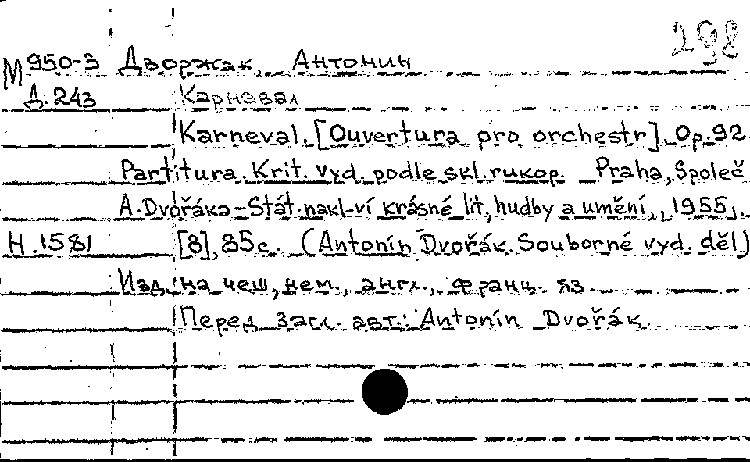 298
М950-3 Дворжак, Антонин
Д.243 Карнавал
Karneval. [Ouvertura pro orchestr]. Op. 92
Partitura. Krit. vyd. podle skl. rukop. Praha, Společ
A. Dvořáka - Stát. nakl-ví krásné lit., hudby a umění, 1955.
Н.1581 [8], 85 с. (Antonín Dvořák. Souborné vyd. děl)
Изд. на чеш., нем., англ., франц. яз.
Перед загл. авт.: Antonín Dvořák